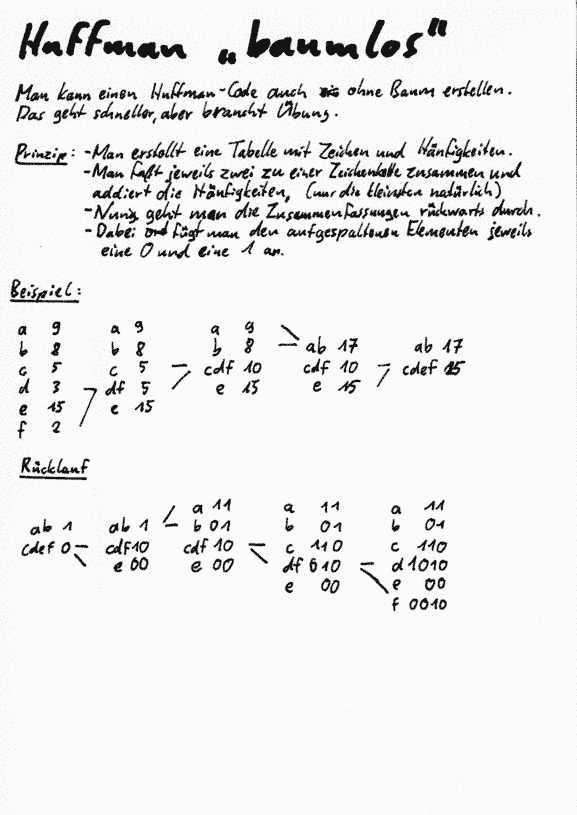 Huffman „baumlos"
Man kann einen Huffman-Code auch ohne Baum erstellen.
Das geht schneller, aber braucht Übung.
Prinzip: - Man erstellt eine Tabelle mit Zeichen und Häufigkeiten.
- Man faßt jeweils zwei zu einer Zeichenkette zusammen und
addiert die Häufigkeiten, (nur die kleinsten natürlich)
- Nun geht man die Zusammenfassungen rückwarts durch.
- Dabei fügt man den aufgespaltenen Elementen jeweils
eine 0 und eine 1 an.
Beispiel:
a 9 a 9 a 9
b 8 b 8 b 8 ab 17 ab 17
c 5 c 5 cdf 10 cdf 10 cdef 25
d 3 df 5 e 15 e 15
e 15 e 15
f 2
Rücklauf
a 11 a 11 a 11
ab 1 ab 1 b 01 b 01 b 01
cdef 0 cdf 10 cdf 10 c 110 c 110
e 00 e 00 df 010 d 1010
e 00 e 00
f 0010